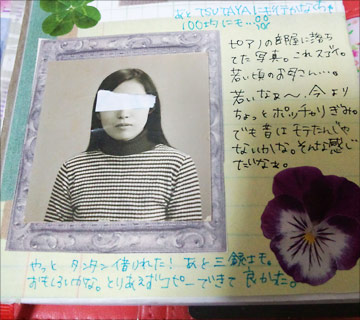 あと TSUTAYAに行かなくちゃ
100均にも…
ピアノの部屋に落ち
てた写真。これスゴイ。
若い頃のお母さん…。
若いなぁ〜、今より
ちょっとポッチャリぎみ。
でも昔はモテたんじゃ
ないかな。そんな感じ
だしなぁ。
やっと タンタン借りれた! あと三銃士も。
おもしろいかな。とりあえずコピーできて良かった。